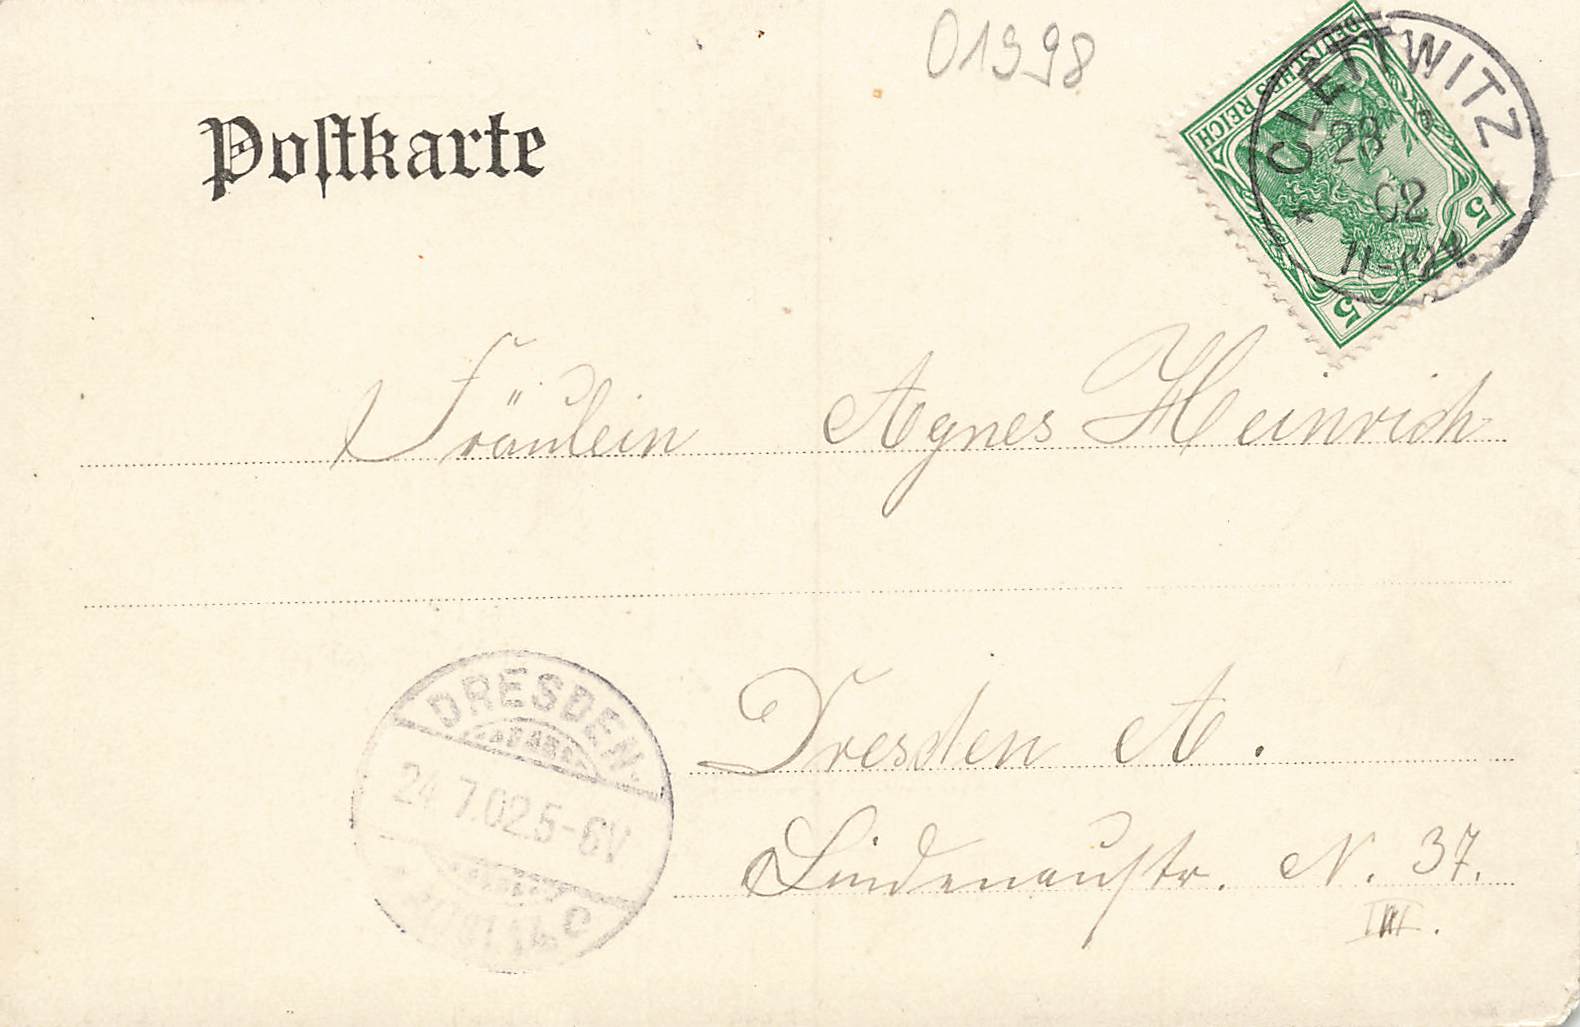 01998
Postkarte
DEUTSCHES REICH
5
5
CLETTWITZ
23
7
02
Fräulein Agnes Heinrich
DRESDEN
24 7.02.5-6V
C
Dresden A.
Lindenaustr. N. 37.
III.